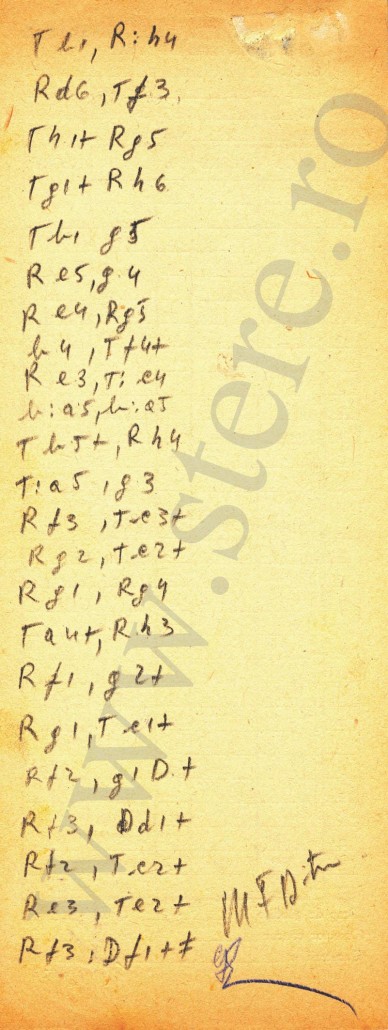 Th1, R:h4
Rd6, Tf3,
Th1+ Rg5
Tg1+ Rh6
Th1 g5
Re5, g4
Re4, Rg5
b4, Tf4+
Re3, T:c4
b:a5, b:a5
Tb5+, Rh4
T:a5, g3
Rf3, Tc3+
Rg2, Tc2+
Rg1, Rg4
Ta4+, Rh3
Rf1, g2+
Rg1, Tc1+
Rf2, g1D+
Rf3, Dd1+
Rf2, Tc2+
Re3, Te2+
Rf3, Df1+≠
www.stere.ro